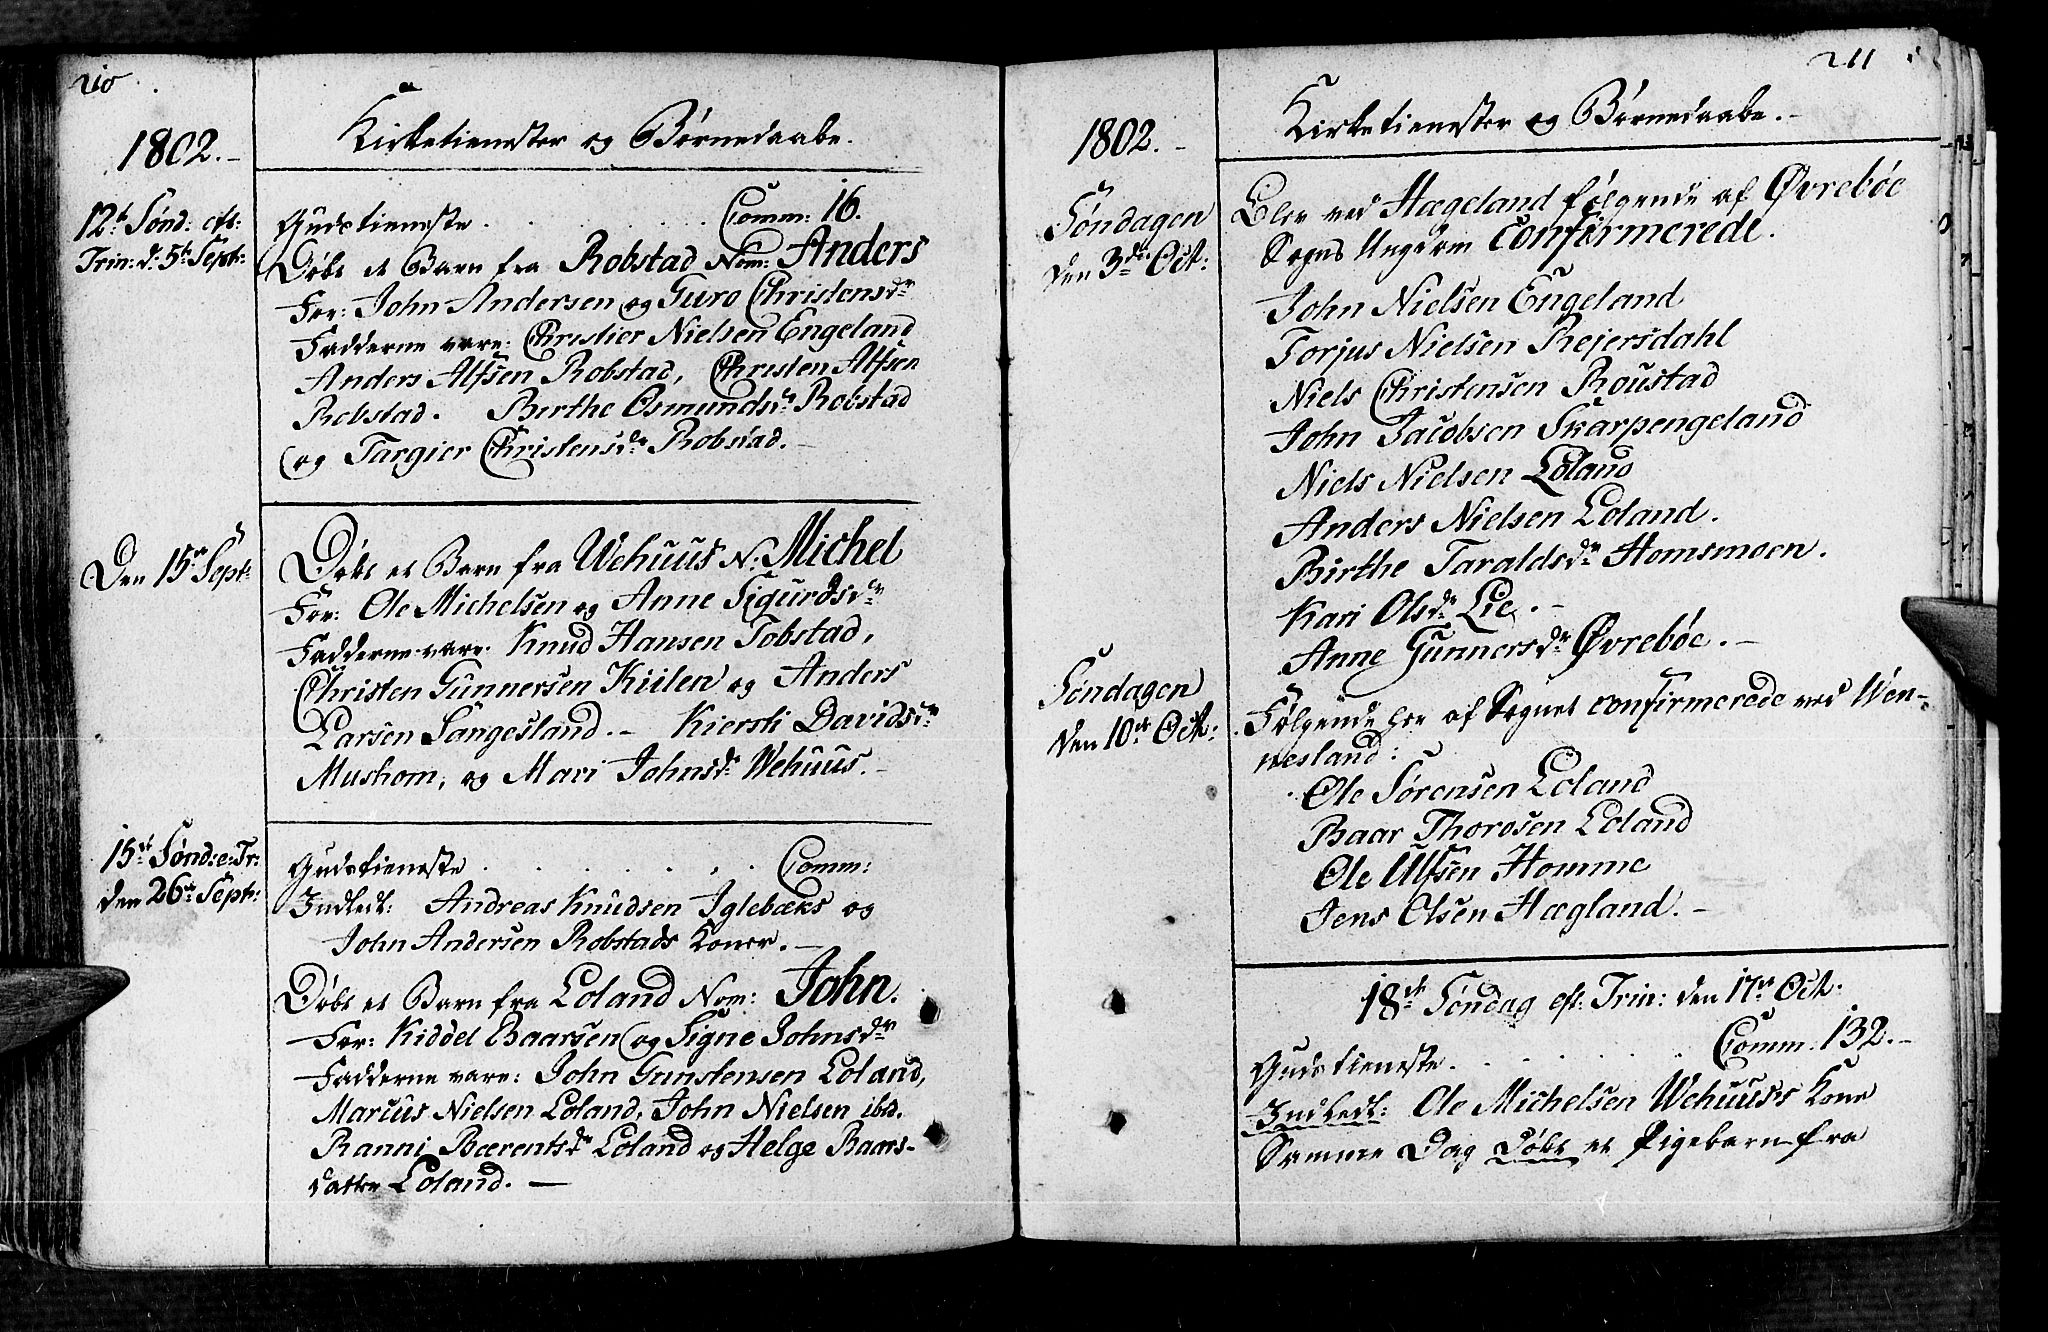 210
1802.
Kirketienester og Børnedaabe.
12te Sønd: eft:
Trin: d: 5te Sept:
Gudstieneste . . . . . Comm: 16.
Døbt et Barn fra Robstad Nom: Anders
For: John Andersen og Guro Christensdr
Fadderne vare: Christier Nielsen Engeland
Anders Alfsen Robstad, Christen Alfsen
Robstad. Birthe Osmundsdr Robstad
og Targier Christensdr Robstad.
Den 15de Sept:
Døbt et Barn fra Wehuus N: Michel
For: Ole Michelsen og Anne Sigurdsdr
Fadderne vare: Knud Hansen Tobstad,
Christen Gunnersen Kiilen og Anders
Larsen Sangesland. – Kiersti Davidsdr
Mushom, og Mari Johnsdr Wehuus. –
15de Sønd: e: Tr:
den 26de Sept:
Gudstieneste . . . . . . Comm:
Indledt: Andreas Knudsen Iglebæks og
John Andersen Robstads Koner. –
Døbt et Barn fra Loland Nom: John.
For: Kiddel Baarsen og Signe Johnsdr
Fadderne vare: John Gunstensen Loland,
Marcus Nielsen Loland, John Nielsen ibid.
Ranni Bærentsdr Loland og Helge Baars-
datter Loland. –
211
1802. –
Kirketienester og Børnedaabe. –
Søndagen
den 3de Oct:
Blev ved Hægeland følgende af Øvrebøe
Sogns Ungdom Confirmerede.
John Nielsen Engeland
Torjus Nielsen Reiersdahl
Niels Christensen Roustad
John Jacobsen Skarpengeland
Niels Nielsen Loland
Anders Nielsen Loland.
Birthe Taraldsdr Homsmoen.
Kari Olsdr Lie. –
Anne Gunnersdr Øvrebøe. –
Søndagen
den 10de Oct:
Følgende her af Sognet confirmerede ved Wen-
nesland:
Ole Sørensen Loland
Baar Thorosen Loland
Ole Ulfsen Homme
Jens Olsen Hægland. –
18de Søndag eft: Trin: den 17de Oct:
Gudstieneste . . . . . Comm. 132. –
Indledt: Ole Michelsen Wehuus's Kone
Samme Dag døbt et Pigebarn fra